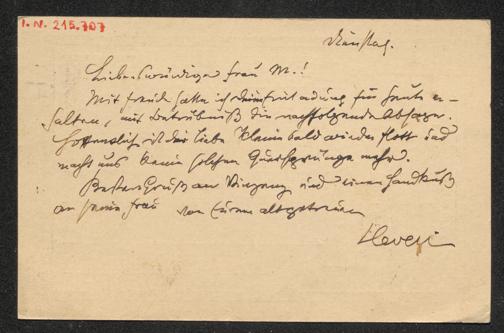 I. N. 215.707
Dienstag.
Liebenswürdige Frau M.!
Mit Freude hatte ich die Einladung für heute er-
halten, mit Betrübniß die nachfolgende Absage.
Hoffentlich ist der liebe Kleine bald wieder flott und
macht uns keine solchen Quersprünge mehr.
Besten Gruß an und einen Handkuß
an seine Frau von Eurem altgetreuen
Hevesi